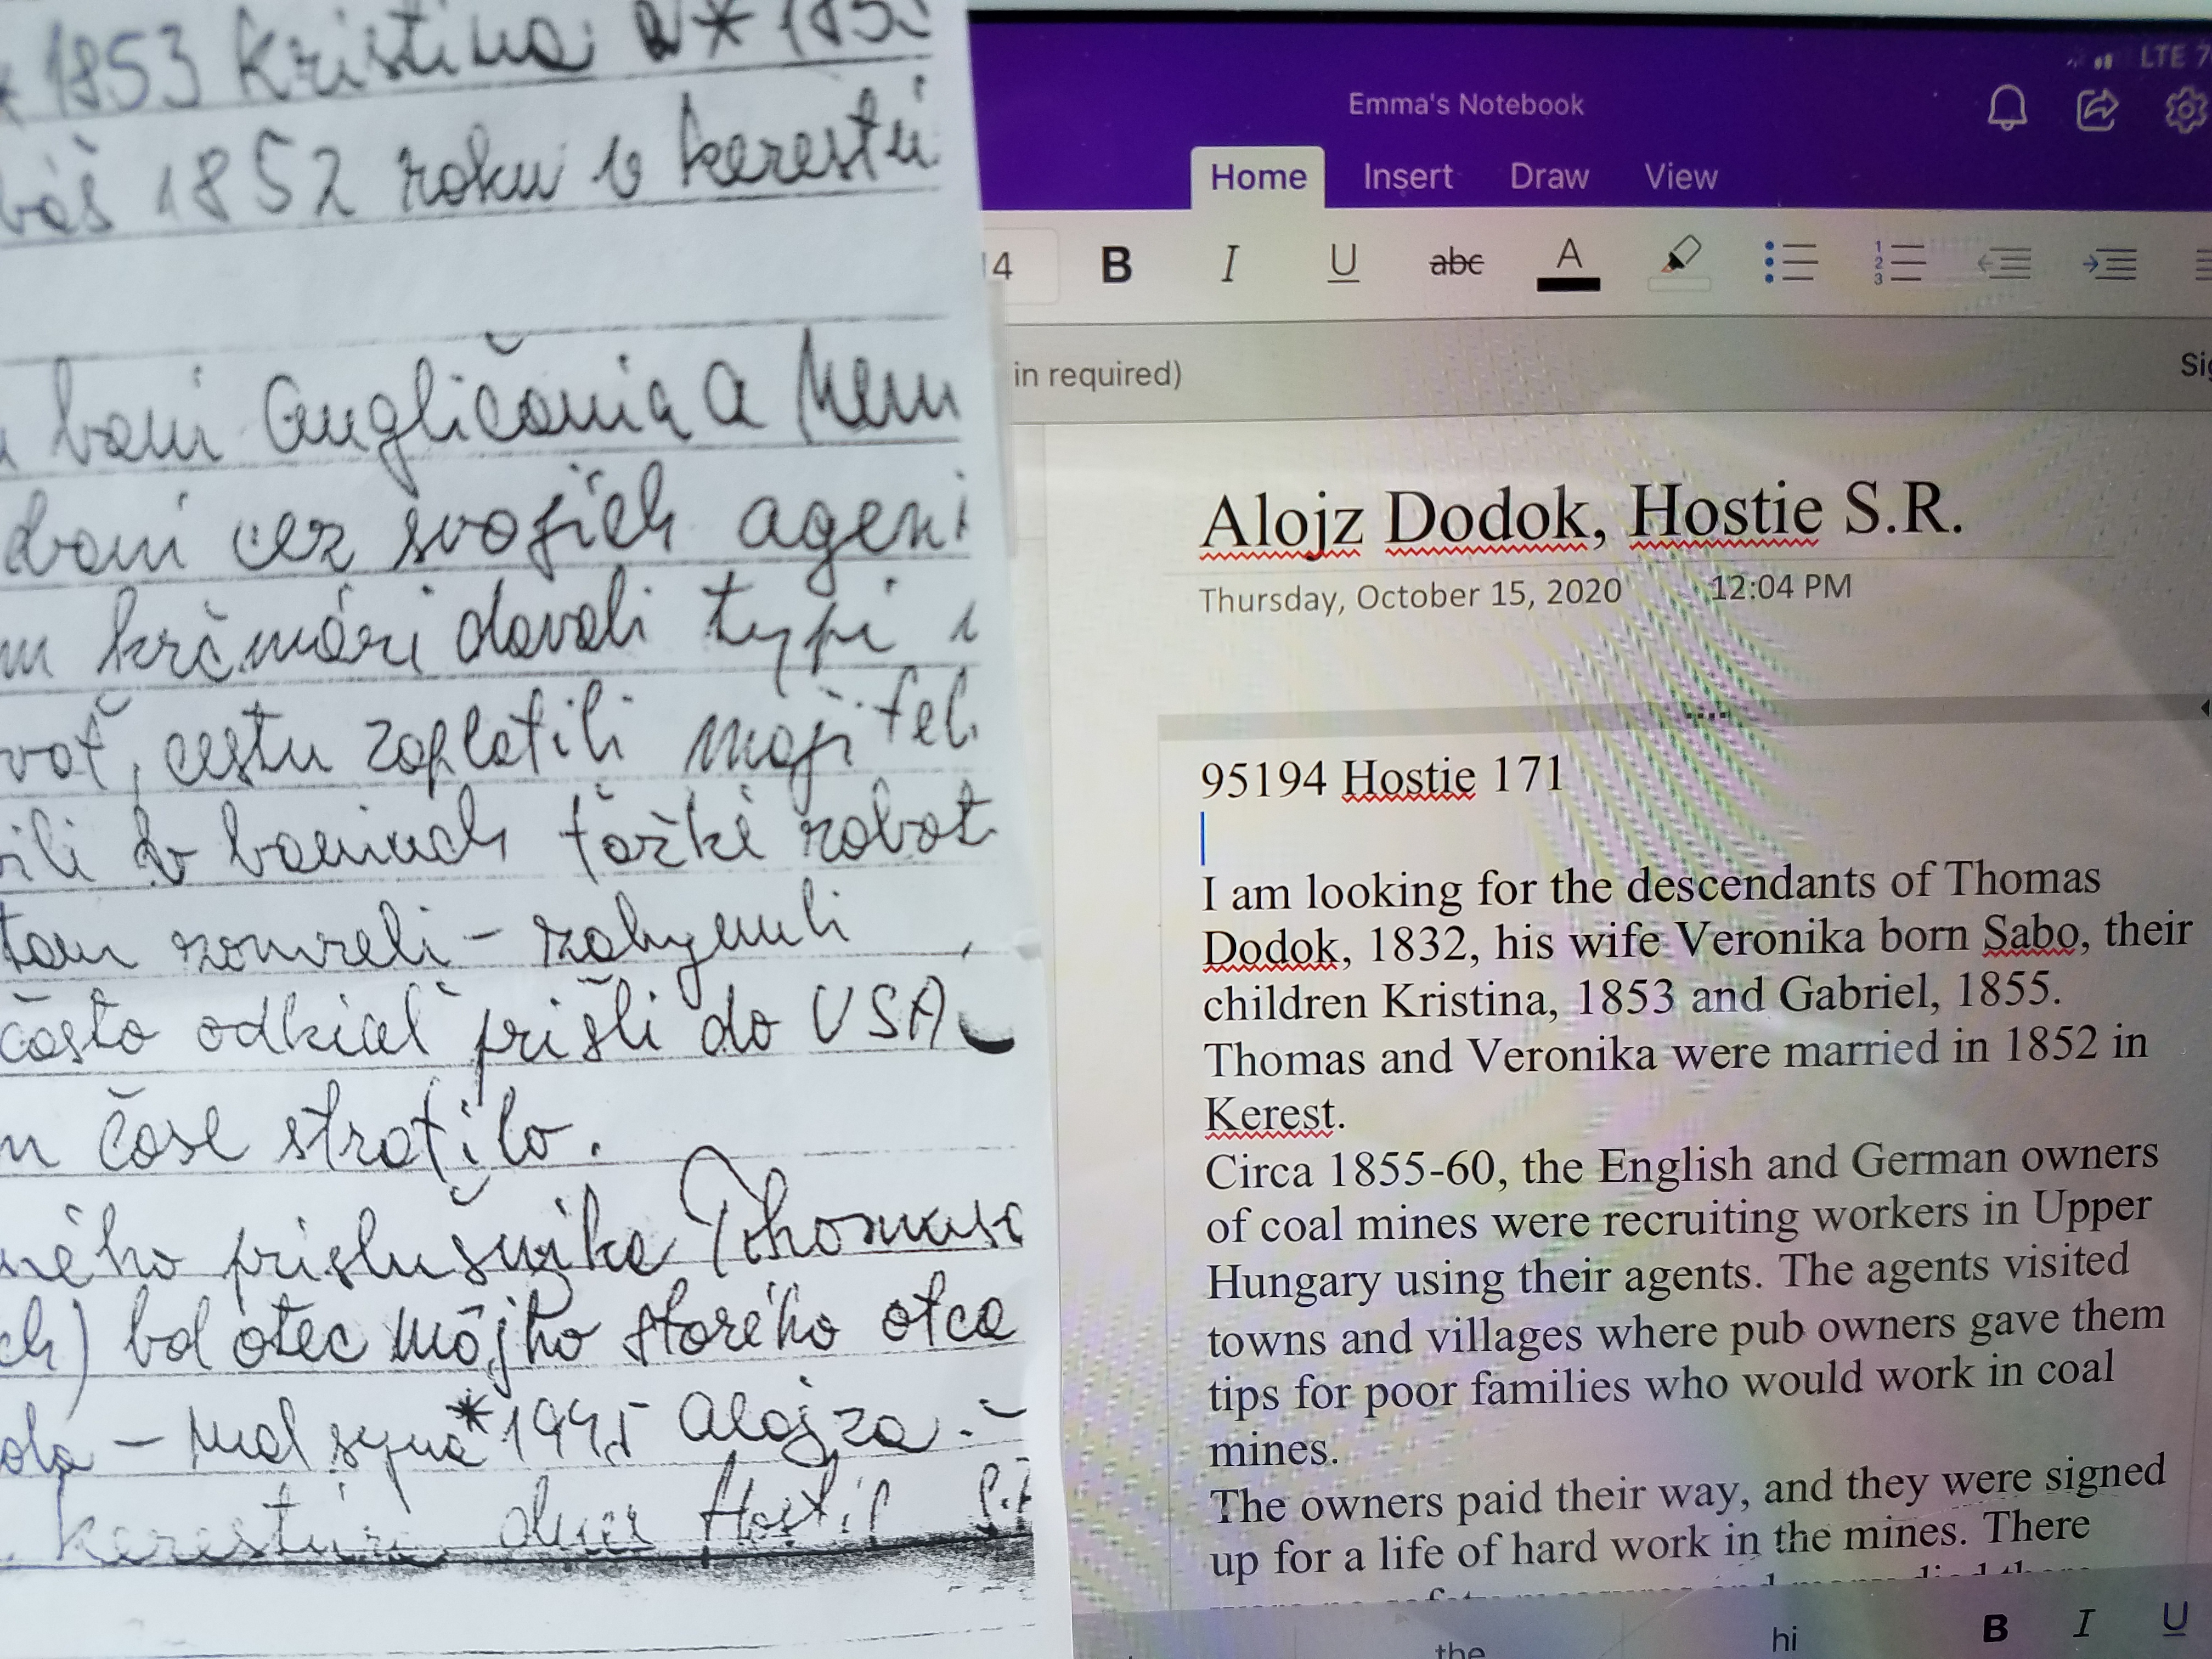 1853 Kristina * 185
1852 roku v kerestú
bani Angličania a Nem
cez svojich agent
krčmári davali typi
cestu zaplatili majiteli
v baniach tažké robot
zomreli - zahynuli
často odkial prišli do USA
čase stratilo.
ného príslušníka Thomasa
bol otec môjho starého otca
- mal syna * 1945 Alojza.
dnes Hostie
Emma's Notebook
LTE
Home Insert Draw View
B I U abc A
in required)
Alojz Dodok, Hostie S.R.
Thursday, October 15, 2020 12:04 PM
95194 Hostie 171
I am looking for the descendants of Thomas
Dodok, 1832, his wife Veronika born Sabo, their
children Kristina, 1853 and Gabriel, 1855.
Thomas and Veronika were married in 1852 in
Kerest.
Circa 1855-60, the English and German owners
of coal mines were recruiting workers in Upper
Hungary using their agents. The agents visited
towns and villages where pub owners gave them
tips for poor families who would work in coal
mines.
The owners paid their way, and they were signed
up for a life of hard work in the mines. There
the hi B I U